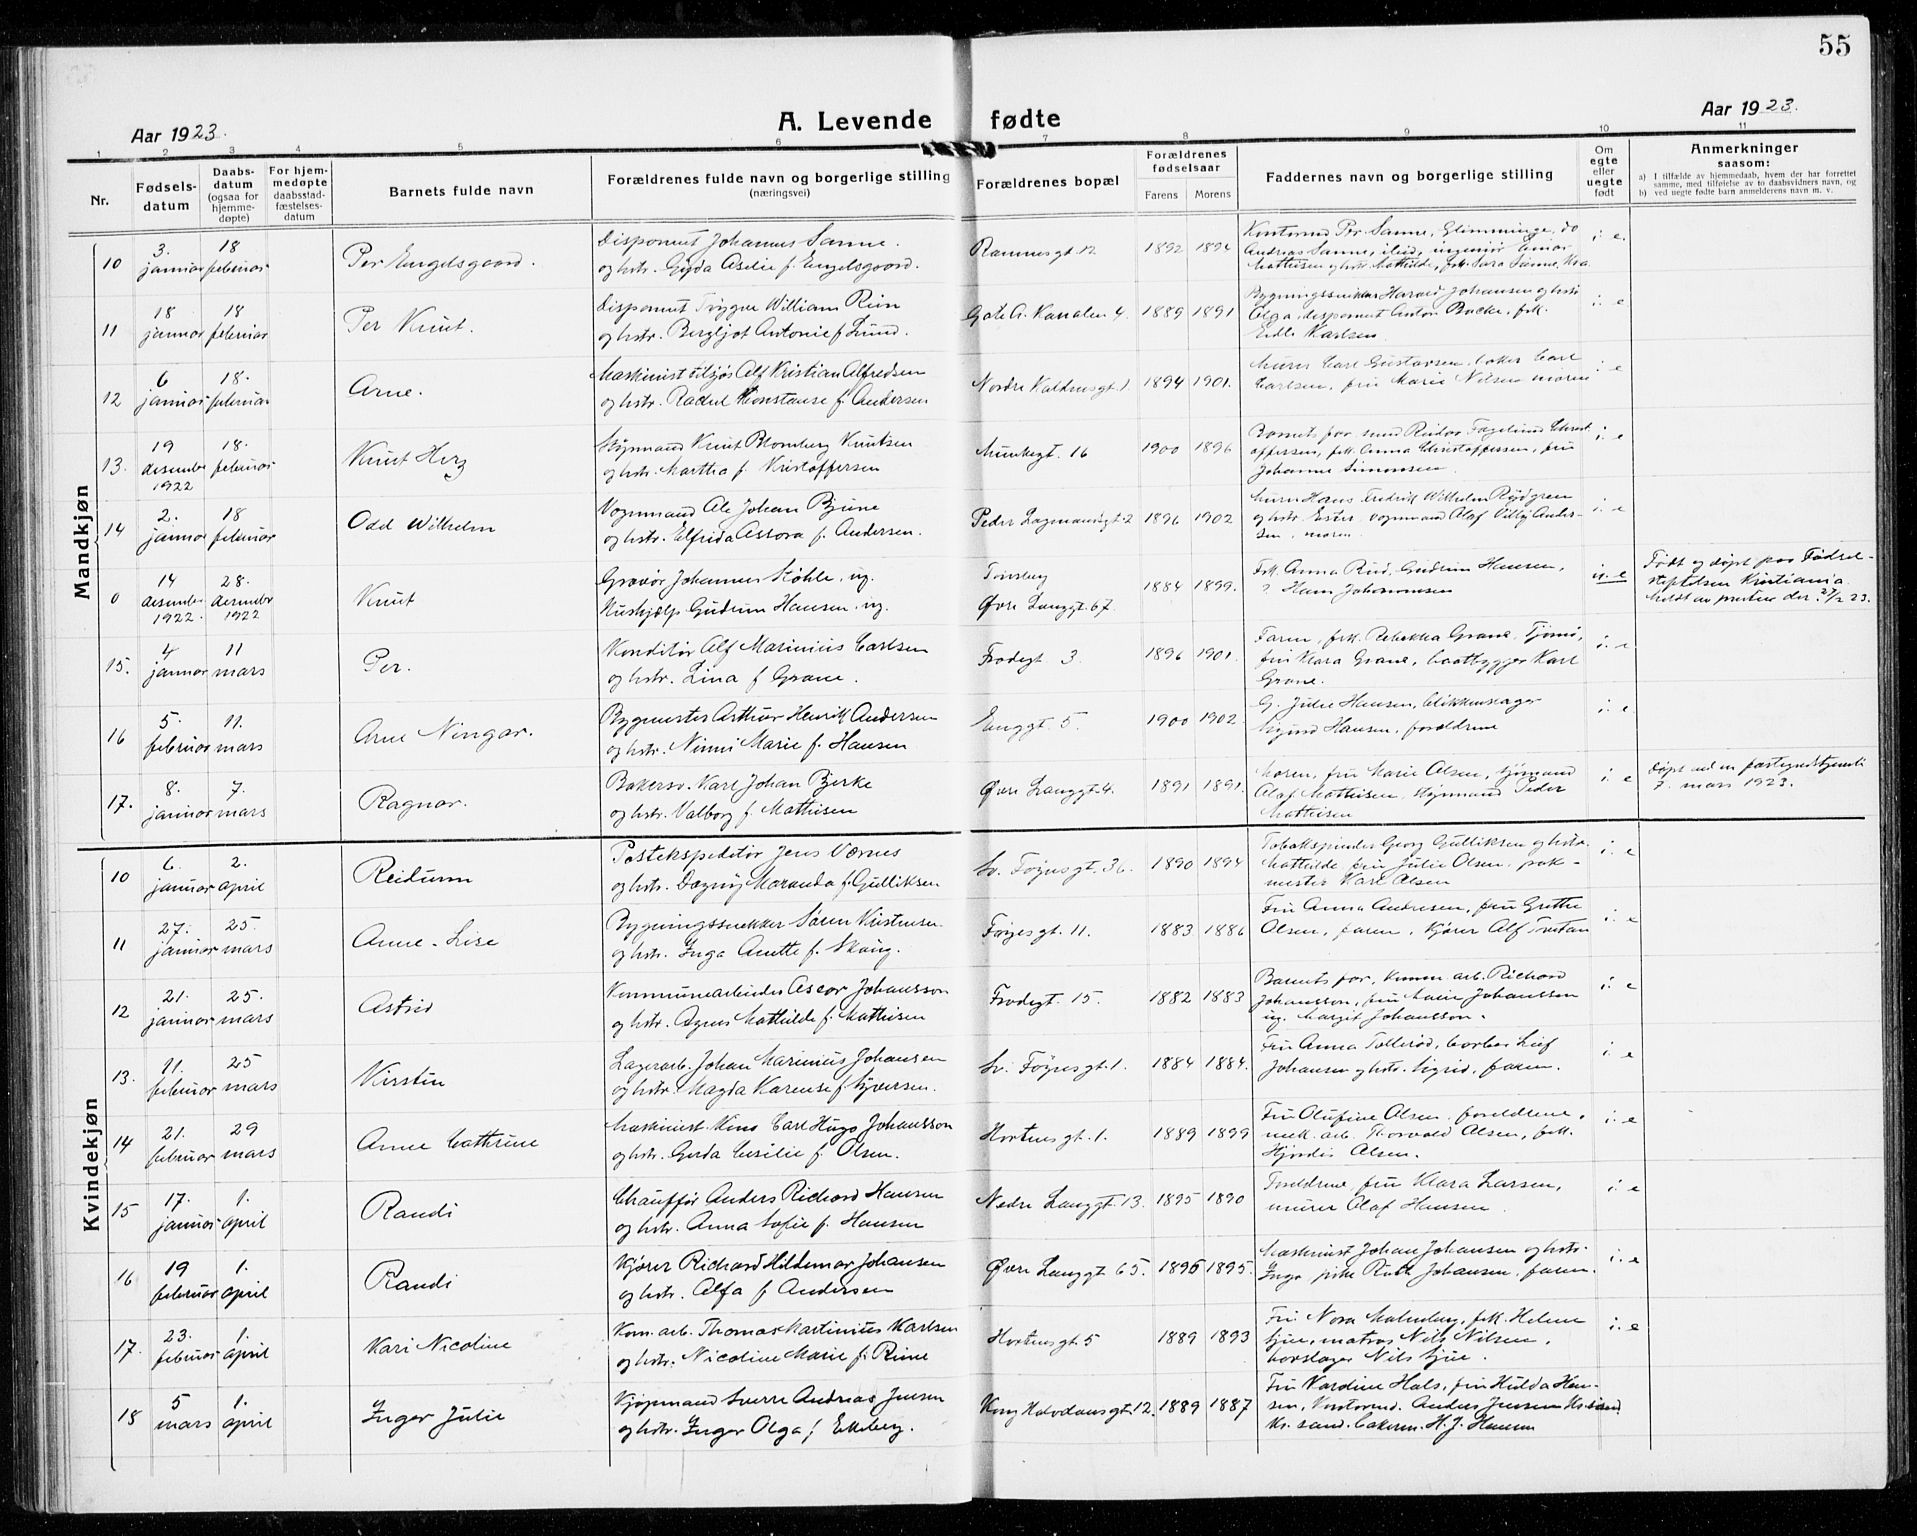 55
Aar 1923.
A. Levende fødte
Aar 1923.
1 2 3 4 5 6 7 8 9 10 11
Nr.
Fødsels-
datum
Daabs-
datum
(ogsaa for
hjemme-
døpte)
For hjem-
medøpte
daabsstad-
fæstelses-
datum
Barnets fulde navn
Forældrenes fulde navn og borgerlige stilling
(næringsvei)
Forældrenes bopæl
Forældrenes
fødselsaar
Farens Morens
Faddernes navn og borgerlige stilling
Om
egte
eller
uegte
født
Anmerkninger
saasom:
a) I tilfælde av hjemmedaab, hvem der har forrettet
samme, med tilføielse av to daabsvidners navn, og
b) ved uegte født barn anmelderens navn m. v.
Mandkjøn
10 3. januar 18 februar Per Engelsgaard.
Disponent Johannes Sanne.
og hstr. Gyda Aselie f. Engelsgaard.
Ramnesgt 12 1892 1894
Kontormd Per Sanne, Glimminge, do
Andreas Sanne, ingeniør Einar
Mathisen og hstr. Mathilde, frk. Sara Sanne, Kra.
i. e.
11 18 januar 18 februar Per Knut.
Disponent Trygve William Riin
og hstr. Bergljot Antonie f Lund.
Gate A. Kanalen 4. 1889 1891
Bygningssnekker Harald Johansen og hstr
Olga, disponent Anton Backe, frk.
Eidli Karlsen.
i. e
12 6 januar 18. februar Arne.
Maskinist tilsjøs Alf Kristian Alfredsen
og hstr. Rachel Konstanse f. Andersen
Nordre Kaldnesgt 1. 1894 1901.
Murer Carl Gustavsen, baker Carl
Carlsen, fru Marie Nilsen moren
i. e
13. 19 desember 1922 18. februar Knut Herz
Styrmand Knut Blomberg Knutsen
og hstr. Martha f. Kristoffersen
Munkegt. 16 1900 1896
Barnets far, Reidar Fagelund Christ
offersen, frk. Anna Christoffersen, fru
Johanne Simonsen
i. e
14 2. januar 18 februar Odd Wilhelm
Vognmand Ole Johan Bjune
og hstr. Elfrida Assora f. Andersen.
Peder Lagmansgt. 2 1896 1902
Murer Hans Fredrik Wilhelm Rydgren
og hstr. Ester, vognmand Olaf Villy Ander-
sen, moren.
i. e
0 14 desember 1922. 28. desember 1922 Knut
Gravør Johannes Støhle, ug.
Hushjælp Gudrun Hansen, ug.
Tønsberg
Øvre Langgt. 67. 1884 1899.
Frk. Anna Rud, Gudrun Hansen,
? Hans Johannesen
u. e
Født og døpt paa Fødsel-
stiftelsen Kristiania.
Meldt av presten der 27/2 23.
15. 4 januar 11 mars Per.
Konditor Alf Marinius Carlsen
og hstr. Lina f Grane.
Frodegt 3. 1896 1901.
Faren, frk. Rebekka Grane, Tjømø,
fru Klara Grane, baatbygger Karl
Grane.
i. e
16 5. februar 11. mars Arne Ningar.
Bygmester Arthur Henrik Andersen
og hstr. Ninni Marie f. Hansen
Enggt 5 1900 1902.
G. Julie Hansen, blikkenslager
Sigurd Hansen, forældrene
i. e
17. 8. januar 7. mars Ragnar.
Bakersv. Karl Johan Bjerke
og hstr. Valborg f. Mathisen
Øvre Langgt. 4. 1891 1891.
Moren, fru Marie Olsen, sjømand
Olaf Mathisen, styrmand Peder
Mathisen
i. e
Døpt ved en fastegudstjeneste
7. mars 1923.
Kvindekjøn
10 6 januar 2. april Reidunn
Postekspeditør Jens Værnes
og hstr. Dagny Maranda f. Gulliksen
Sv. Føynsgt. 36. 1890 1894
Tobakspinder Georg Gulliksen og hstr.
Mathilde, fru Julie Olsen, pak-
mester Karl Olsen
i. e
11 27. januar 25. mars Anne-Lise
Bygningssnekker Søren Kristensen
og hstr. Inga Anette f. Skaug.
Føynsgt. 11. 1883 1886
Fru Anna Andresen, fru Grethe
Olsen, faren, kjører Alf Tveitan
i. e
12 21. januar 25. mars Astrid
Kommunearbeider Ascar Johansson
og hstr. Agnes Mathilde f. Mathisen
Frodegt 15. 1882 1883
Barnets far, komm. arb. Richard
Johansson, fru Marie Johanssen
ug. Margit Johansson.
i. e
13. 11. februar 25 mars Kirstin
Lagerarb. Johan Marinius Johansen
og hstr. Magda Karense f. Syversen.
Sv. Føynsgt. 1. 1884 1884.
Fru Anna Tollerød, barber Leif
Johansen og hstr. Sigrid, faren.
i. e
14 21. februar 29 mars Anne Cathrine
Maskinist Kino Carl Hugo Johansson
og hstr. Gerda Cesilie f. Olsen.
Hortensgt. 1. 1889 1899
Fru Olufine Olsen, foreldrene,
mek. arb. Thorvald Olsen, frk.
Hjørdis Olsen.
i. e
15 17. januar 1. april Randi
Chauffør Anders Richard Hansen
og hstr. Anna Sofie f. Hansen
Nedre Langgt. 13. 1895 1890
Foreldrene, fru Klara Larsen,
murer Olaf Hansen.
i. e
16 19 februar 1. april Randi
Kjører Richard Hildemar Johansen
og hstr. Alfa f Andersen
Øvre Langgt 65. 1895 1895.
Maskinist Johan Johansen og hstr.
Inga, pike Ruth Johansen, faren.
i. e
17. 23. februar 1. april Kari Nicoline
Kom. arb. Thomas Martinius Karlsen
og hstr. Nicoline Marie f. Rime
Hortensgt 5 1889 1893
Fru Nora Malmberg, frk. Helene
Sjue, matros Nils Nilsen,
Nils Sjue.
i. e
18 5 mars 1. april Inger Julie
Kjøpmand Sverre Andreas Jensen
og hstr. Inger Olga f Ekeberg.
Kong Halvdansgt. 12. 1889 1887
Fru Nardine Hals, fru Hulda Han-
sen, Kontormd. Anders Jensen Kr.sand
Kr.sand. Bakerm. H. J. Hansen